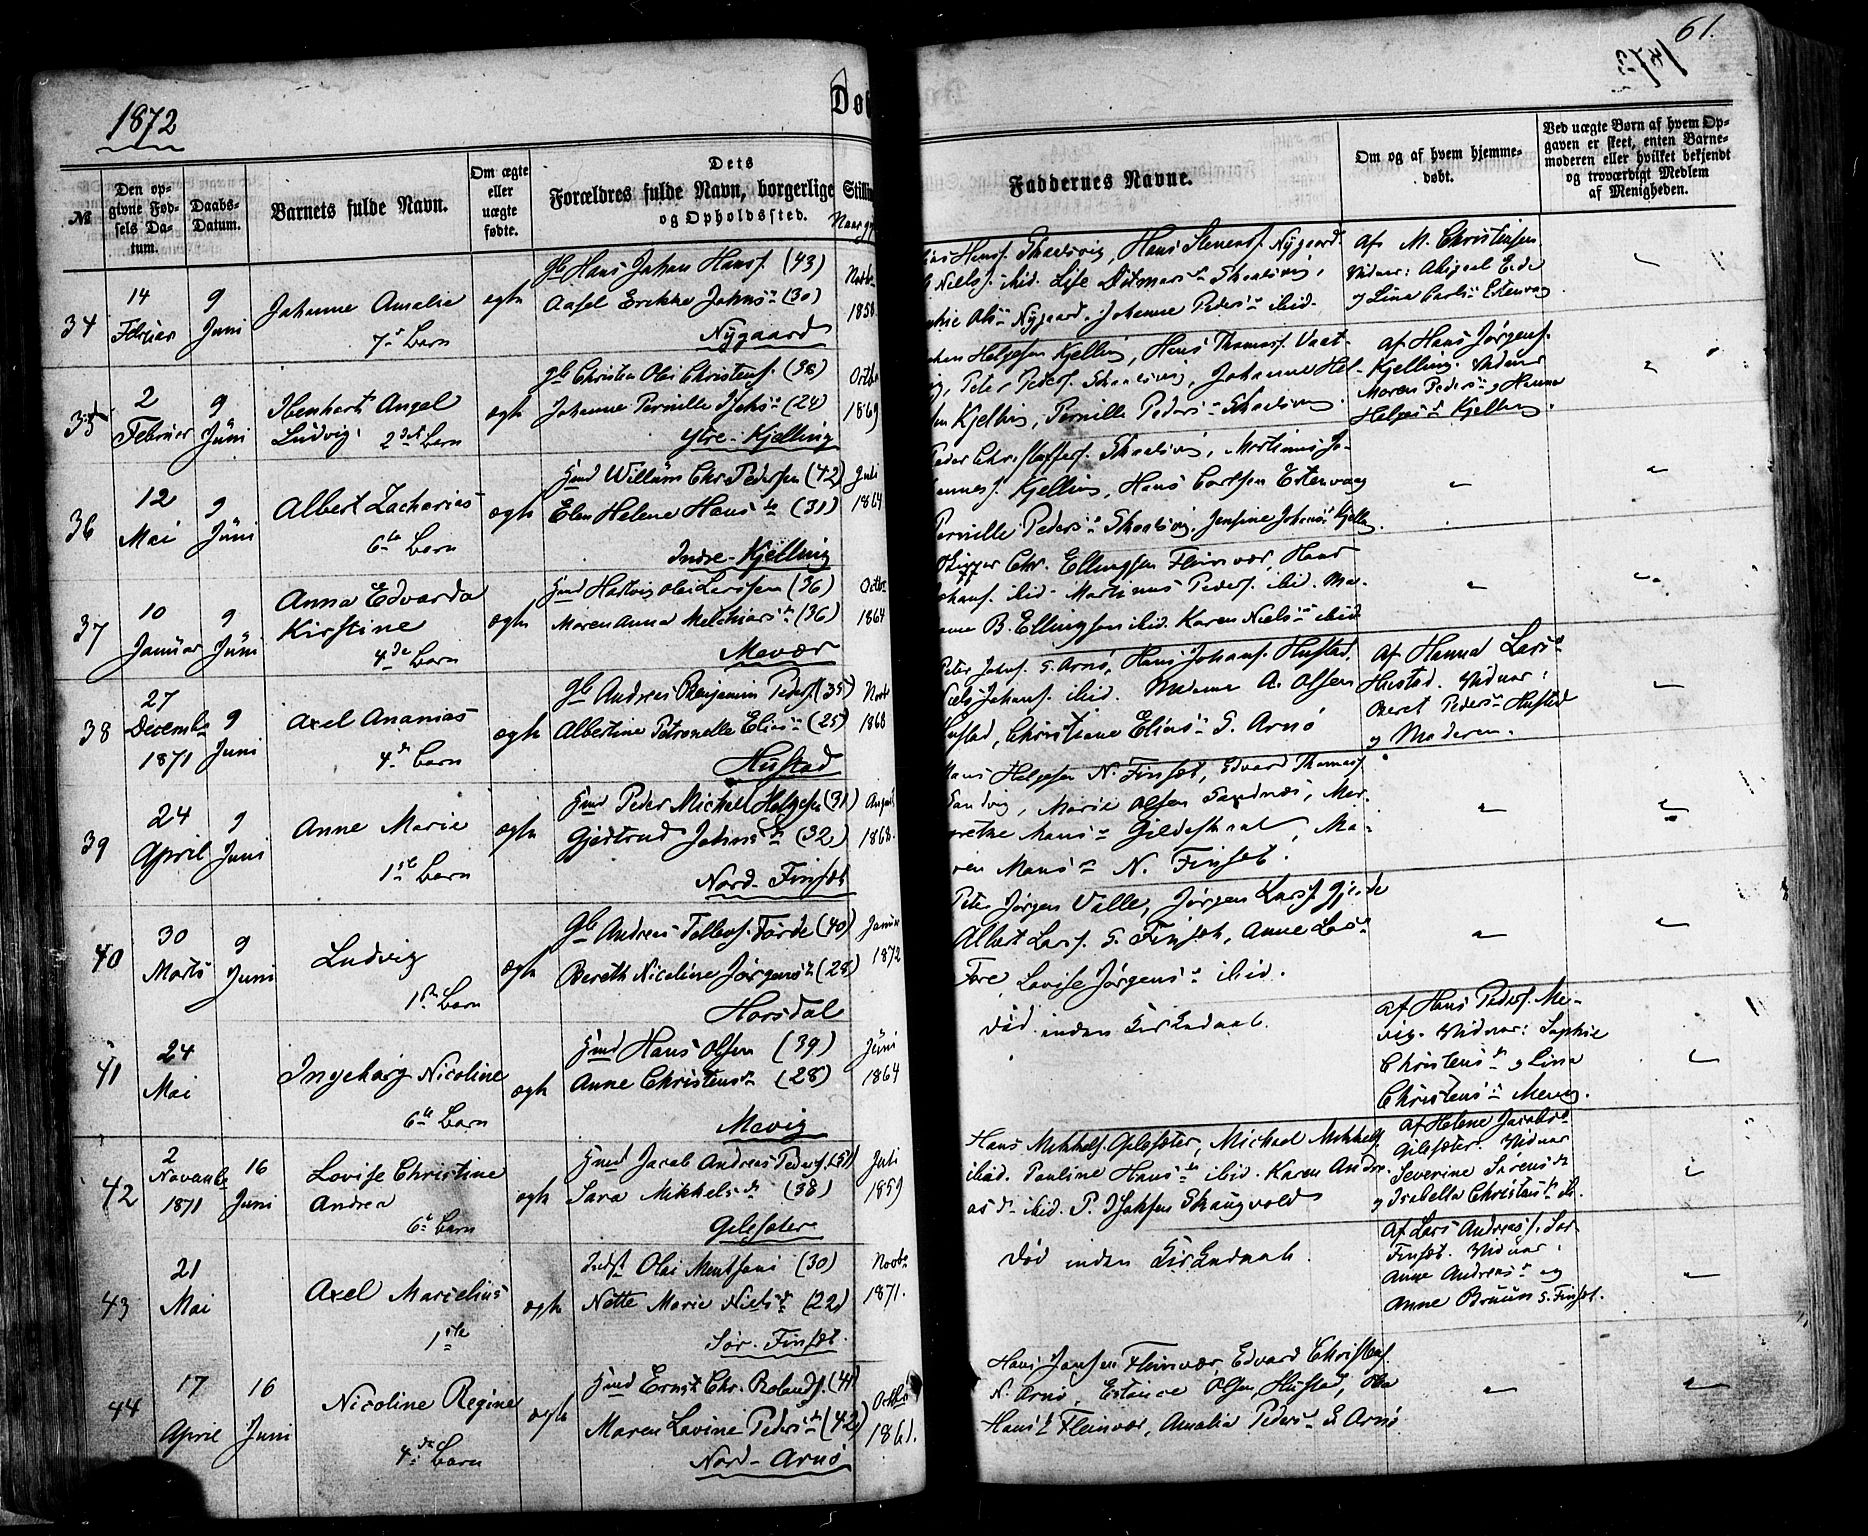 1872
61.
Dø
№
Den op-
givne Fød-
sels Da-
tum.
Daabs-
Datum.
Barnets fulde Navn.
Om ægte
eller
uægte
fødte.
Dets
Forældres fulde Navn, borgerlige Stilli
og Opholdssted.
Faddernes Navne.
Om og af hvem hjemme-
døbt.
Ved uægte Børn af hvem Op-
gaven er skeet, enten Barne-
moderen eller hvilket bekjendt
og troværdigt Medlem
af Menigheden.
34
14
Februar
9
Juni
Johanne Amalie
7de Barn
ægte
Gb Hans Johan Hans. (43)
Aasel Erikka Johnsd. (30)
Nygaard
1858
Hans. Skaalsvig, Hans Steners. Nygaard.
Niels. ibid. Lise Ditmarsd. Skaalsvig,
Olsd. Nygaard. Johanne Pedersd. ibid.
af M. Christensen
Vidner: Abigael Eide
og Lina Carlsd. Estenvag
35
2
Februar
9
Juni
Ibenhart Angel
Ludvig 2det Barn
ægte
Gb Christen Olai Christens. (38)
Johanne Pernille Isaksd. (24)
Ytre-Kjelling
Octbr
1869
Helgesen Kjelling, Hans Thomas. Vaat-
vig, Peter Peders. Skaalsvig, Johanne Hel-
Kjelling, Pernille Pedersd. Skaalsvig.
af Hans Jørgens.
Kjelling. Vidner
Maren Pedersd. og Hanna
Helgesd. Kjelling.
36
12
Mai
9
Juni
Albert Zacharias
6te Barn
ægte
Hmd Willum Chr. Pedersen (42)
Elen Helene Hansd. (31)
Indre-Kjelling
Juli
1864
Peder Christoffers. Skaalsvig, Martinus Jo-
hannes. Kjelling, Hans Carlsen Estenvag
Pernille Pedersd. Skaalsvig, Jensine Johansd. Kjelling.
37
10
Januar
9
Juni
Anna Edvarda
Kirstine
4de Barn
ægte
Hmd Hartvig Olai Larssen (36)
Maren Anna Melchiorsd. (36)
Mevær
Octbr
1864
Skipper Chr. Ellingsen Fleinvær, Hans
Johans. ibid. Martinus Peders. ibid. Ma-
B. Ellingsen ibid. Karen Nielsd. ibid
38
27
Decembr
1871
9
Juni
Axel Ananias
4de Barn
ægte
Gb Andreas Benjamin Peders. (35)
Albertine Petronelle Eliasd. (25)
Hustad
Novbr
1868
Peter Johns. S. Arnø, Hans Johans. Hustad,
Niels Johans. ibid. Madame A. Olsen
Hustad, Christiane Eliasd. S. Arnø
af Hanna Larsd.
Hustad. Vidner:
Beret Pedersd. Hustad
og Moderen.
39
24
April
9
Juni
Anne Marie
1ste Barn
ægte
Hmd Peder Michael Helgesen (31)
Gjertrud Johnsd. (32)
Nord-Finset
August
1868.
Hans Helgesen N. Finset, Edvard Thomas.
Sandvig, Marie Olsen Sandnæs, Mar-
grethe Hansd. Gildeskaal, Ma-
ren Monsd. N. Finset.
40
30
Marts
9
Juni
Ludvig
1ste Barn
ægte
Gb Andreas Tollevs. Førde (40)
Bereth Nicoline Jørgensd. (28)
Horsdal
Januar
1872
Peter Jørgen Valle, Jørgen Lars.
Albert Lars. S. Finset, Anne Larsd.
Fore Lovise Jørgensd. ibid.
41
24
Mai
Ingeborg Nicoline
6te Barn
ægte
Hmd Hans Olsen (39)
Anne Christensd. (28)
Mevig
Juni
1864
Død inden Kirkedaab.
af Hans Peders. Me-
vig. Vidner: Sophie
Christensd. og Lina
Christensd. Mevig.
42
2
Novembr
1871
16
Juni
Lovise Christine
Andrea
6te Barn
ægte
Hmd Jacob Andreas Peders. (51)
Sara Mikkelsd. (38)
Gilsæter
Juli
1859
Hans Mikkels. Gilsæter, Michael Mikkels.
ibid. Pauline Hansd. ibid. Karen Andre-
asd. ibid. P. Isaksen Skaugvold
af Helene Jacobsd.
Gilsæter. Vidner
Severine Sørensd.
og Isabella Christensd. ib.
43
21
Mai
Axel Marselius
1ste
ægte
Inds. Olai Mentsani (30)
Nette Marie Nielsd. (22)
Sør-Finset.
Novbr
1871.
Død inden Kirkedaab.
af Lars Andreas. Sør-
Finset. Vidner:
Anne Andreasd. og
Anne Bruun S. Finset.
44
17
April
16
Juni
Nicoline Regine
4de Barn
ægte
Hmd Ernst Chr. Rolands. (41)
Maren Lavine Pedersd. (42)
Nord-Arnø
Octbr
1861.
Hans Jansen Fleinvær, Edvard Christens.
N. Arnø, Olsen, Hustad,
Hansd. Fleinvær, Amalia Pedersd. S. Arnø